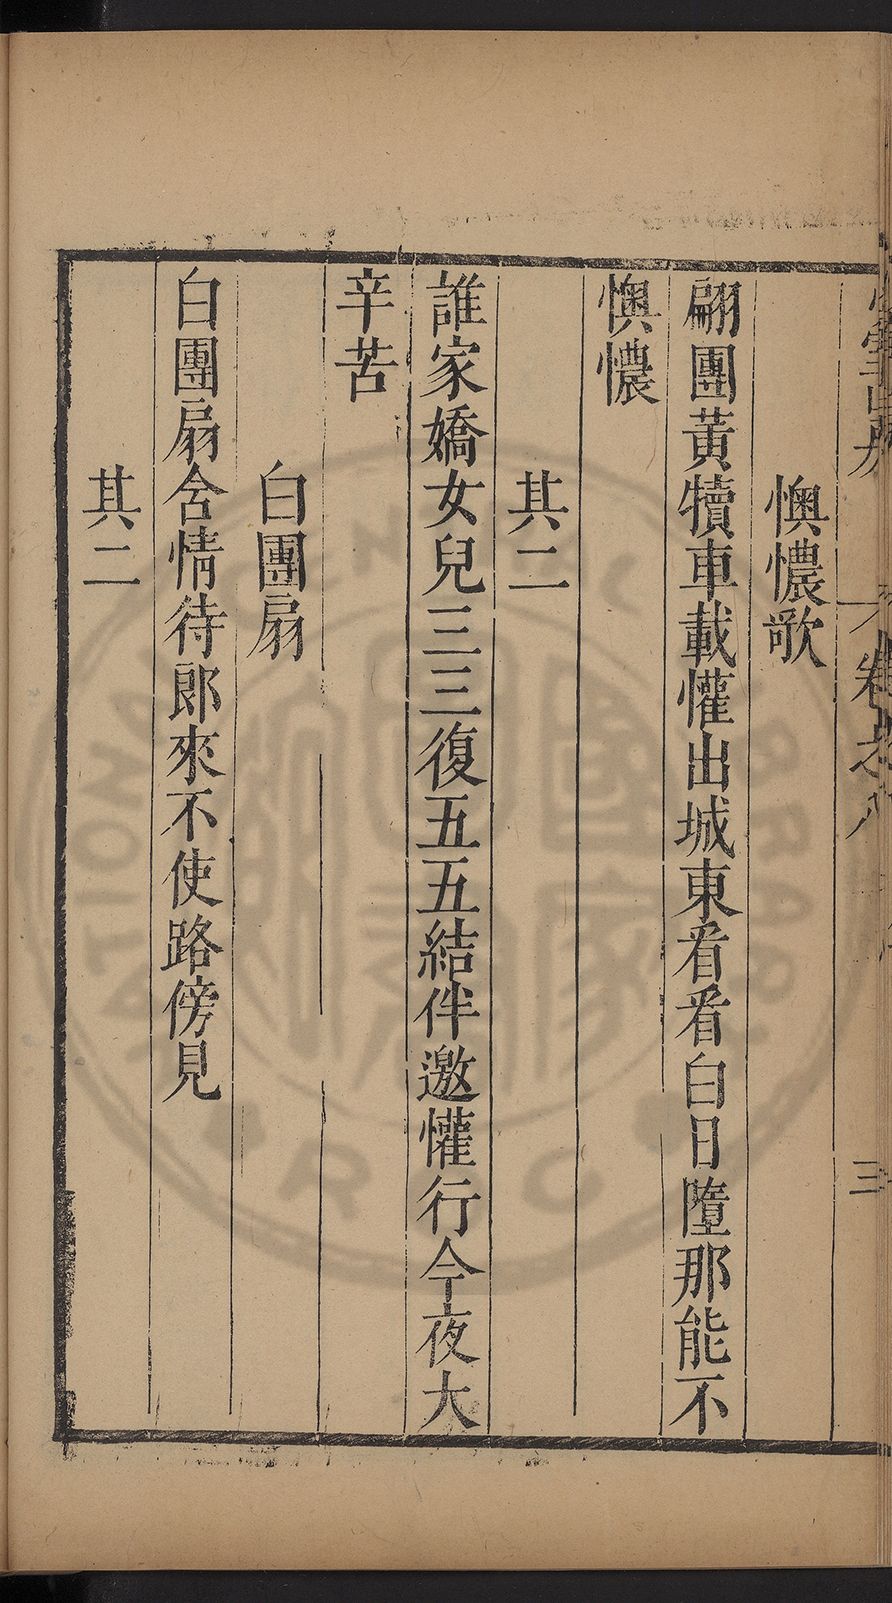 卷之八
三
懊憹歌
翩團黃犢車載懽出城東看看白日墮那能不
懊憹
其二
誰家嬌女兒三三復五五結伴邀懽行今夜大
辛苦
白團扇
白團扇含情待郎來不使路傍見
其二